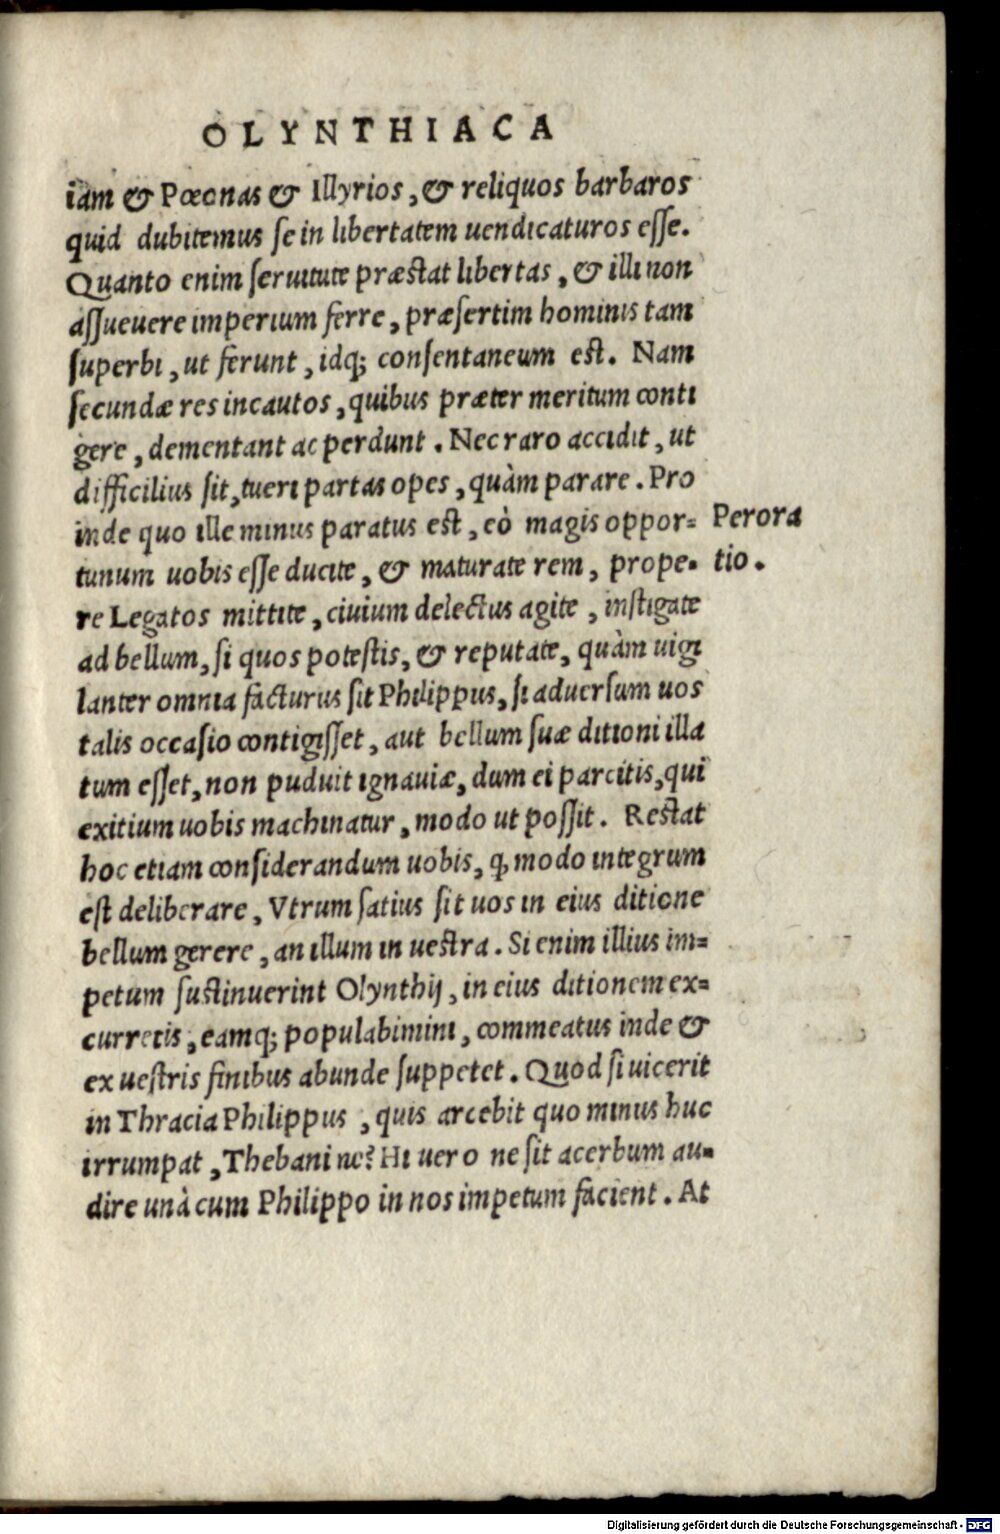 OLYNTHIACA
iam & Pœonas & Illyrios, & reliquos barbaros
quid dubitemus se in libertatem uendicaturos esse.
Quanto enim seruitute præstat libertas, & illi non
assueuere imperium ferre, præsertim hominis tam
superbi, ut ferunt, idq; consentaneum est. Nam
secundæ res incautos, quibus præter meritum conti
gere, dementant ac perdunt. Nec raro accidit, ut
difficilius sit, tueri partas opes, quàm parare. Pro
inde quo ille minus paratus est, eò magis oppor-
tunum uobis esse ducite, & maturate rem, prope-
re Legatos mittite, ciuium delectus agite, instigate
ad bellum, si quos potestis, & reputate, quàm uigi
lanter omnia facturus sit Philippus, si aduersum uos
talis occasio contigisset, aut bellum suæ ditioni illa
tum esset, non puduit ignauiæ, dum ei parcitis, qui
exitium uobis machinatur, modo ut possit. Restat
hoc etiam considerandum uobis, ꝙ modo integrum
est deliberare, Vtrum satius sit uos in eius ditione
bellum gerere, an illum in uestra. Si enim illius im-
petum sustinuerint Olynthij, in eius ditionem ex-
curretis, eamq; populabimini, commeatus inde &
ex uestris finibus abunde suppetet. Quod si uicerit
in Thracia Philippus, quis arcebit quo minus huc
irrumpat, Thebani ne? Hi uero ne sit acerbum au-
dire unà cum Philippo in nos impetum facient. At
Perora
tio.
Digitalisierung gefördert durch die Deutsche Forschungsgemeinschaft - DFG